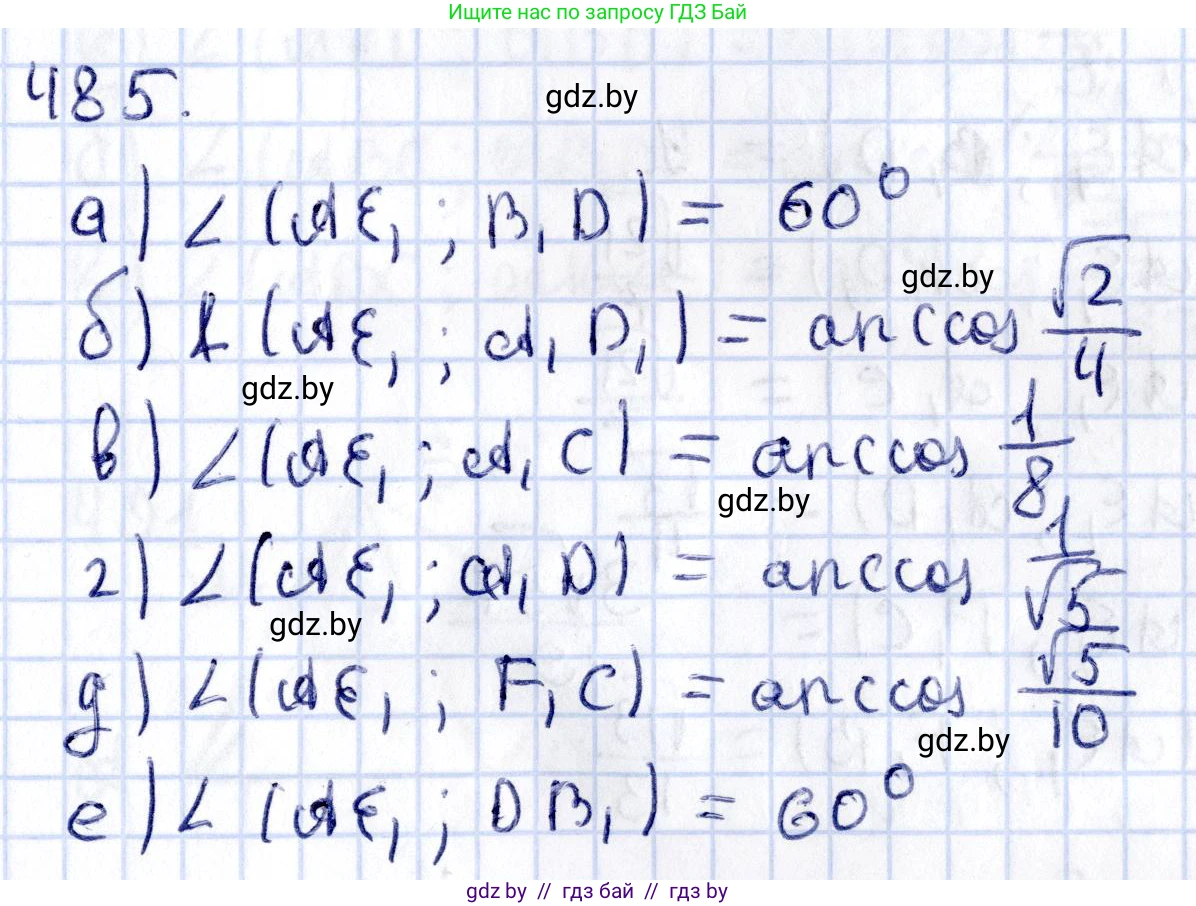 Ищите нас по запросу ГДЗ Бай
485.
gdz.by
а) ∠(AE₁; B₁D) = 60°
gdz.by
б) ∠(AE₁; A₁D₁) = arccos √2/4
gdz.by
в) ∠(AE₁; A₁C) = arccos 1/8
gdz.by
г) ∠(AE₁; A₁D) = arccos 1/√5
gdz.by
д) ∠(AE₁; F₁C) = arccos √5/10
gdz.by
е) ∠(AE₁; DB₁) = 60°
gdz.by // гдз бай // гдз by